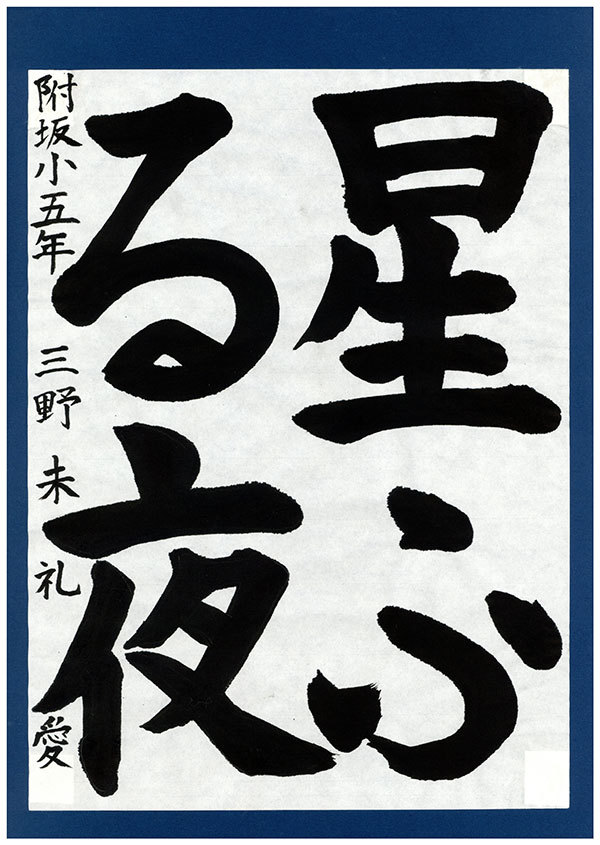 星ふ
る夜
附坂小五年 三野未礼愛